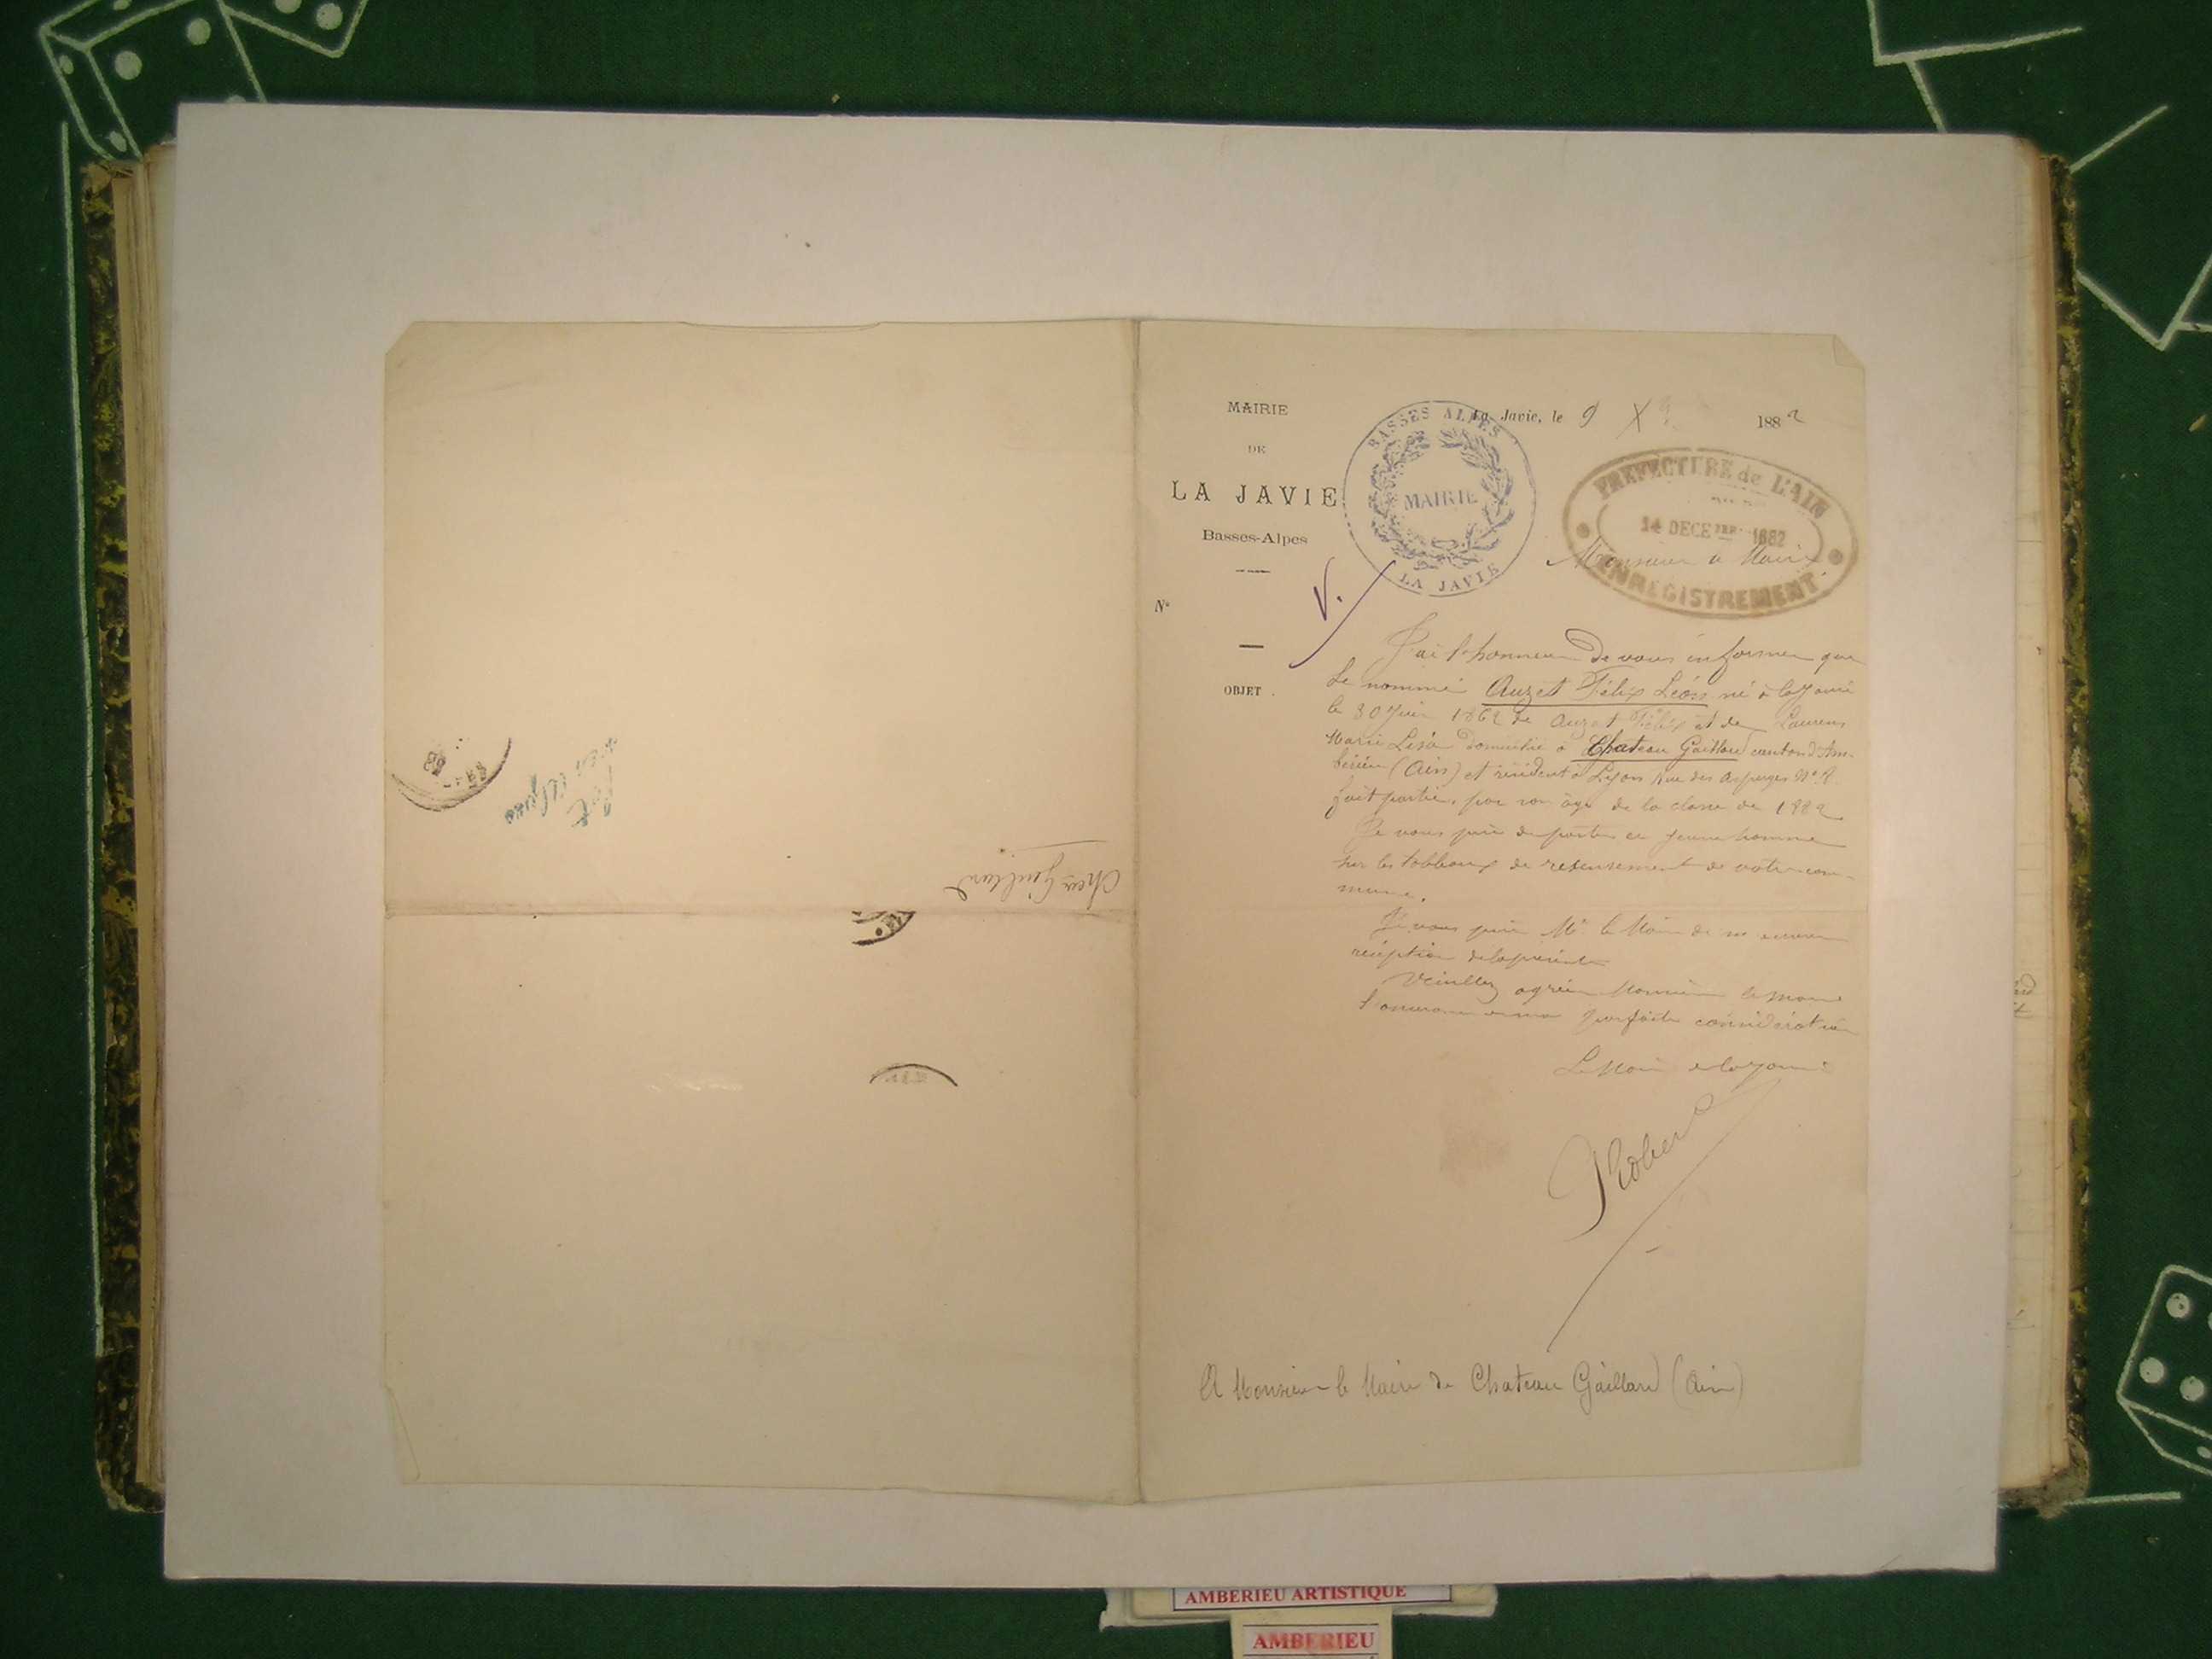 MAIRIE
DE
LA JAVIE
Basses-Alpes
N°
OBJET
La Javie, le 9 X 1882
BASSES ALPES
MAIRIE
LA JAVIE
PREFECTURE de L'AIN
14 DECEMBRE 1882
ENREGISTREMENT
V.
Monsieur le Maire
J'ai l'honneur de vous informer que
le nommé Auzet Félix Léon né à la Javie
le 30 Juin 1862 de Auzet Félix et de Laurens
Marie Lisa domicilié à Chateau Gaillard canton d'Am-
berieu (Ain) et résident à Lyon rue des Asperges N°
fait partie, par son âge de la classe de 1882
Je vous prie de porter ce jeune homme
sur les tableaux de resensement de votre com-
mune.
Je vous prie Mr le Maire de
réception de la présente
Veuillez agréer Monsieur le Maire
l'assurance de ma parfaite considération
Le Maire de la Javie
Robert
A Monsieur le Maire de Chateau Gaillard (Ain)
Chau Gaillard
AMBERIEU ARTISTIQUE
AMBERIEU